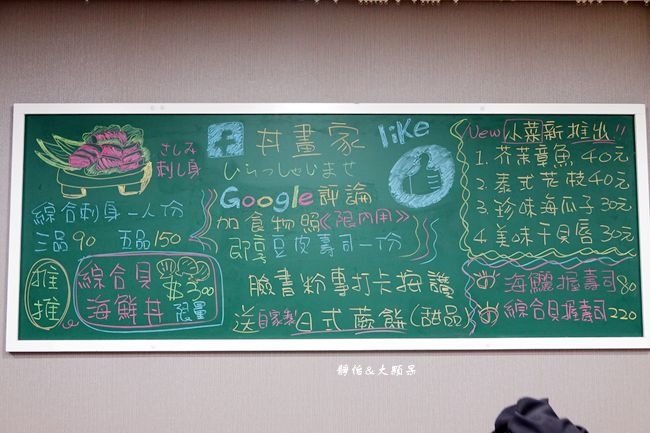 さしみ
刺し身
綜合刺身一人份
三品90 五品150
推推
綜合貝
海鮮丼
$300
限量
丼畫家
いらっしゃいませ
like
Google評論
加食物照《限內用》
即享豆皮壽司一份
臉書粉專打卡按讚
送自家製日式蕨餅(甜品)
New 小菜新推出!!
1. 芥茉章魚 40元
2. 泰式花枝 40元
3. 珍味海瓜子 30元
4. 美味干貝唇 30元
海鱺握壽司 80
綜合貝握壽司 220
靜怡&大顆呆